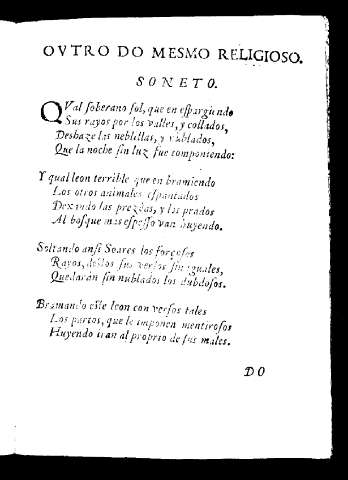 OVTRO DO MESMO RELIGIOSO.
SONETO.
QVal soberano sol, que en espargiendo
Sus rayos por los valles, y collados,
Deshaze las neblillas, y nublados,
Que la noche sin luz fue componiendo:
Y qual leon terrible que en bramiendo
Los otros animales espantados
Dexando las prezdas, y los prados
Al bosque mas espesso van huyendo.
Soltando ansi Soares los forçosos
Rayos, destos sus versos sin iguales,
Quedarán sin nublados los dubdosos.
Bramando este leon con versos tales
Los partos, que le imponen mentirosos
Huyendo iran al proprio de sus males.
DO